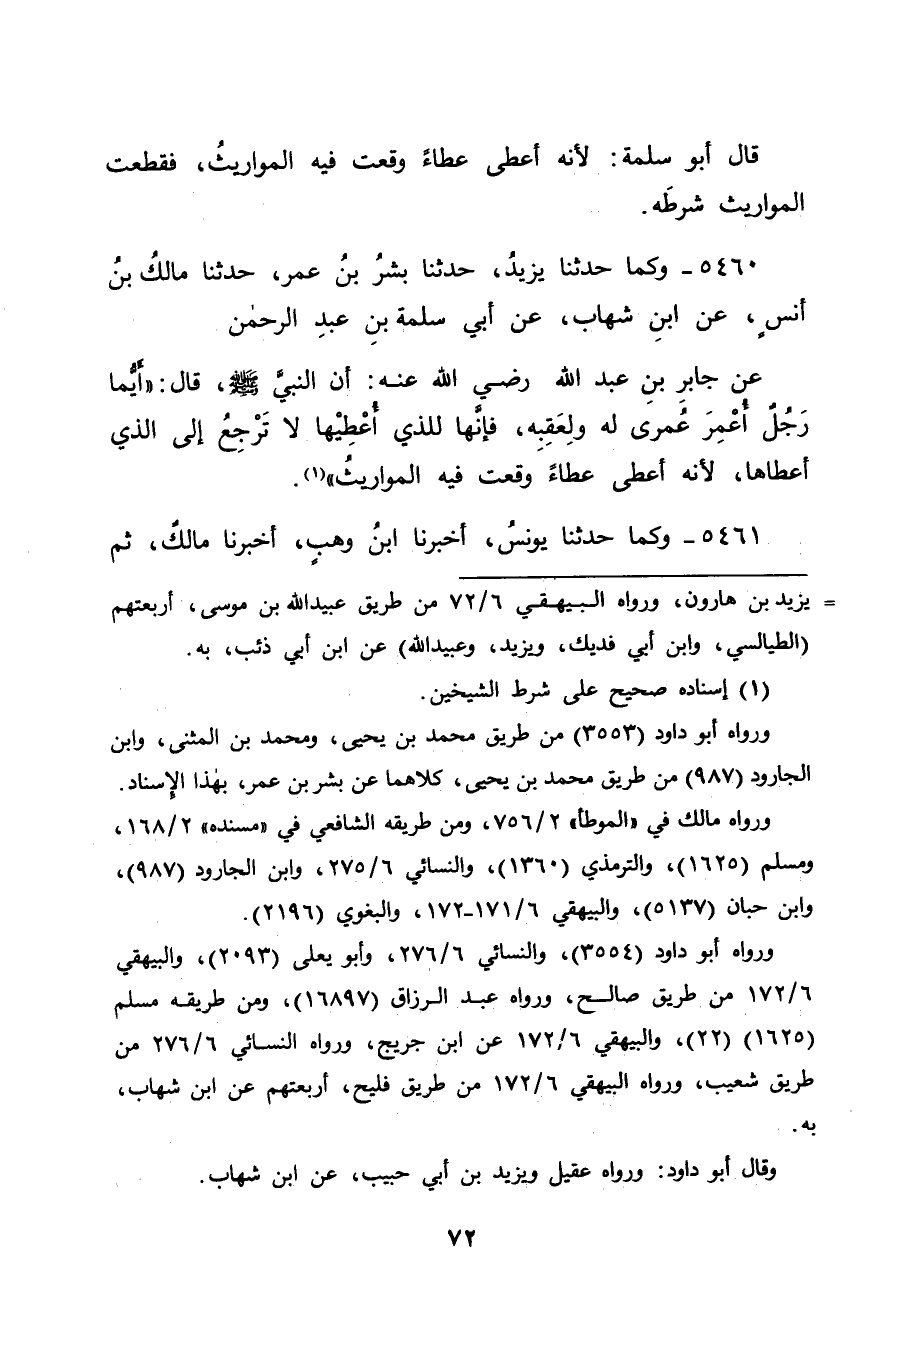 قال أبو سلمة: لأنه أعطى عطاءً وقعت فيه المواريثُ، فقطعت
المواريث شرطَه.
٥٤٦٠ - وكما حدثنا يزيدُ، حدثنا بشرُ بنُ عمر، حدثنا مالكُ بنُ
أنسٍ، عن ابنِ شهاب، عن أبي سلمة بنِ عبدِ الرحمٰن
عن جابرِ بنِ عبد الله رضي الله عنه: أن النبيَّ ﷺ، قال: «أَيُّما
رَجُلٌ أُعْمِرَ عُمرى له ولِعَقِبِه، فإنَّها للذي أُعْطِيْها لا تَرْجِعُ إلى الذي
أعطاها، لأنه أعطى عطاءً وقعت فيه المواريثُ»(١).
٥٤٦١ - وكما حدثنا يونسُ، أخبرنا ابنُ وهبٍ، أخبرنا مالكٌ، ثم
= يزيد بن هارون، ورواه البيهقي ٧٢/٦ من طريق عبيدالله بن موسى، أربعتهم
(الطيالسي، وابن أبي فديك، ويزيد، وعبيدالله) عن ابن أبي ذئب، به.
(١) إسناده صحيح على شرط الشيخين.
ورواه أبو داود (٣٥٥٣) من طريق محمد بن يحيى، ومحمد بن المثنى، وابن
الجارود (٩٨٧) من طريق محمد بن يحيى، كلاهما عن بشر بن عمر، بهٰذا الإسناد.
ورواه مالك في «الموطأ» ٧٥٦/٢، ومن طريقه الشافعي في «مسنده» ١٦٨/٢،
ومسلم (١٦٢٥)، والترمذي (١٣٦٠)، والنسائي ٢٧٥/٦، وابن الجارود (٩٨٧)،
وابن حبان (٥١٣٧)، والبيهقي ١٧١/٦-١٧٢، والبغوي (٢١٩٦).
ورواه أبو داود (٣٥٥٤)، والنسائي ٢٧٦/٦، وأبو يعلى (٢٠٩٣)، والبيهقي
١٧٢/٦ من طريق صالح، ورواه عبد الرزاق (١٦٨٩٧)، ومن طريقه مسلم
(١٦٢٥) (٢٢)، والبيهقي ١٧٢/٦ عن ابن جريج، ورواه النسائي ٢٧٦/٦ من
طريق شعيب، ورواه البيهقي ١٧٢/٦ من طريق فليح، أربعتهم عن ابن شهاب،
به.
وقال أبو داود: ورواه عقيل ويزيد بن أبي حبيب، عن ابن شهاب.
٧٢